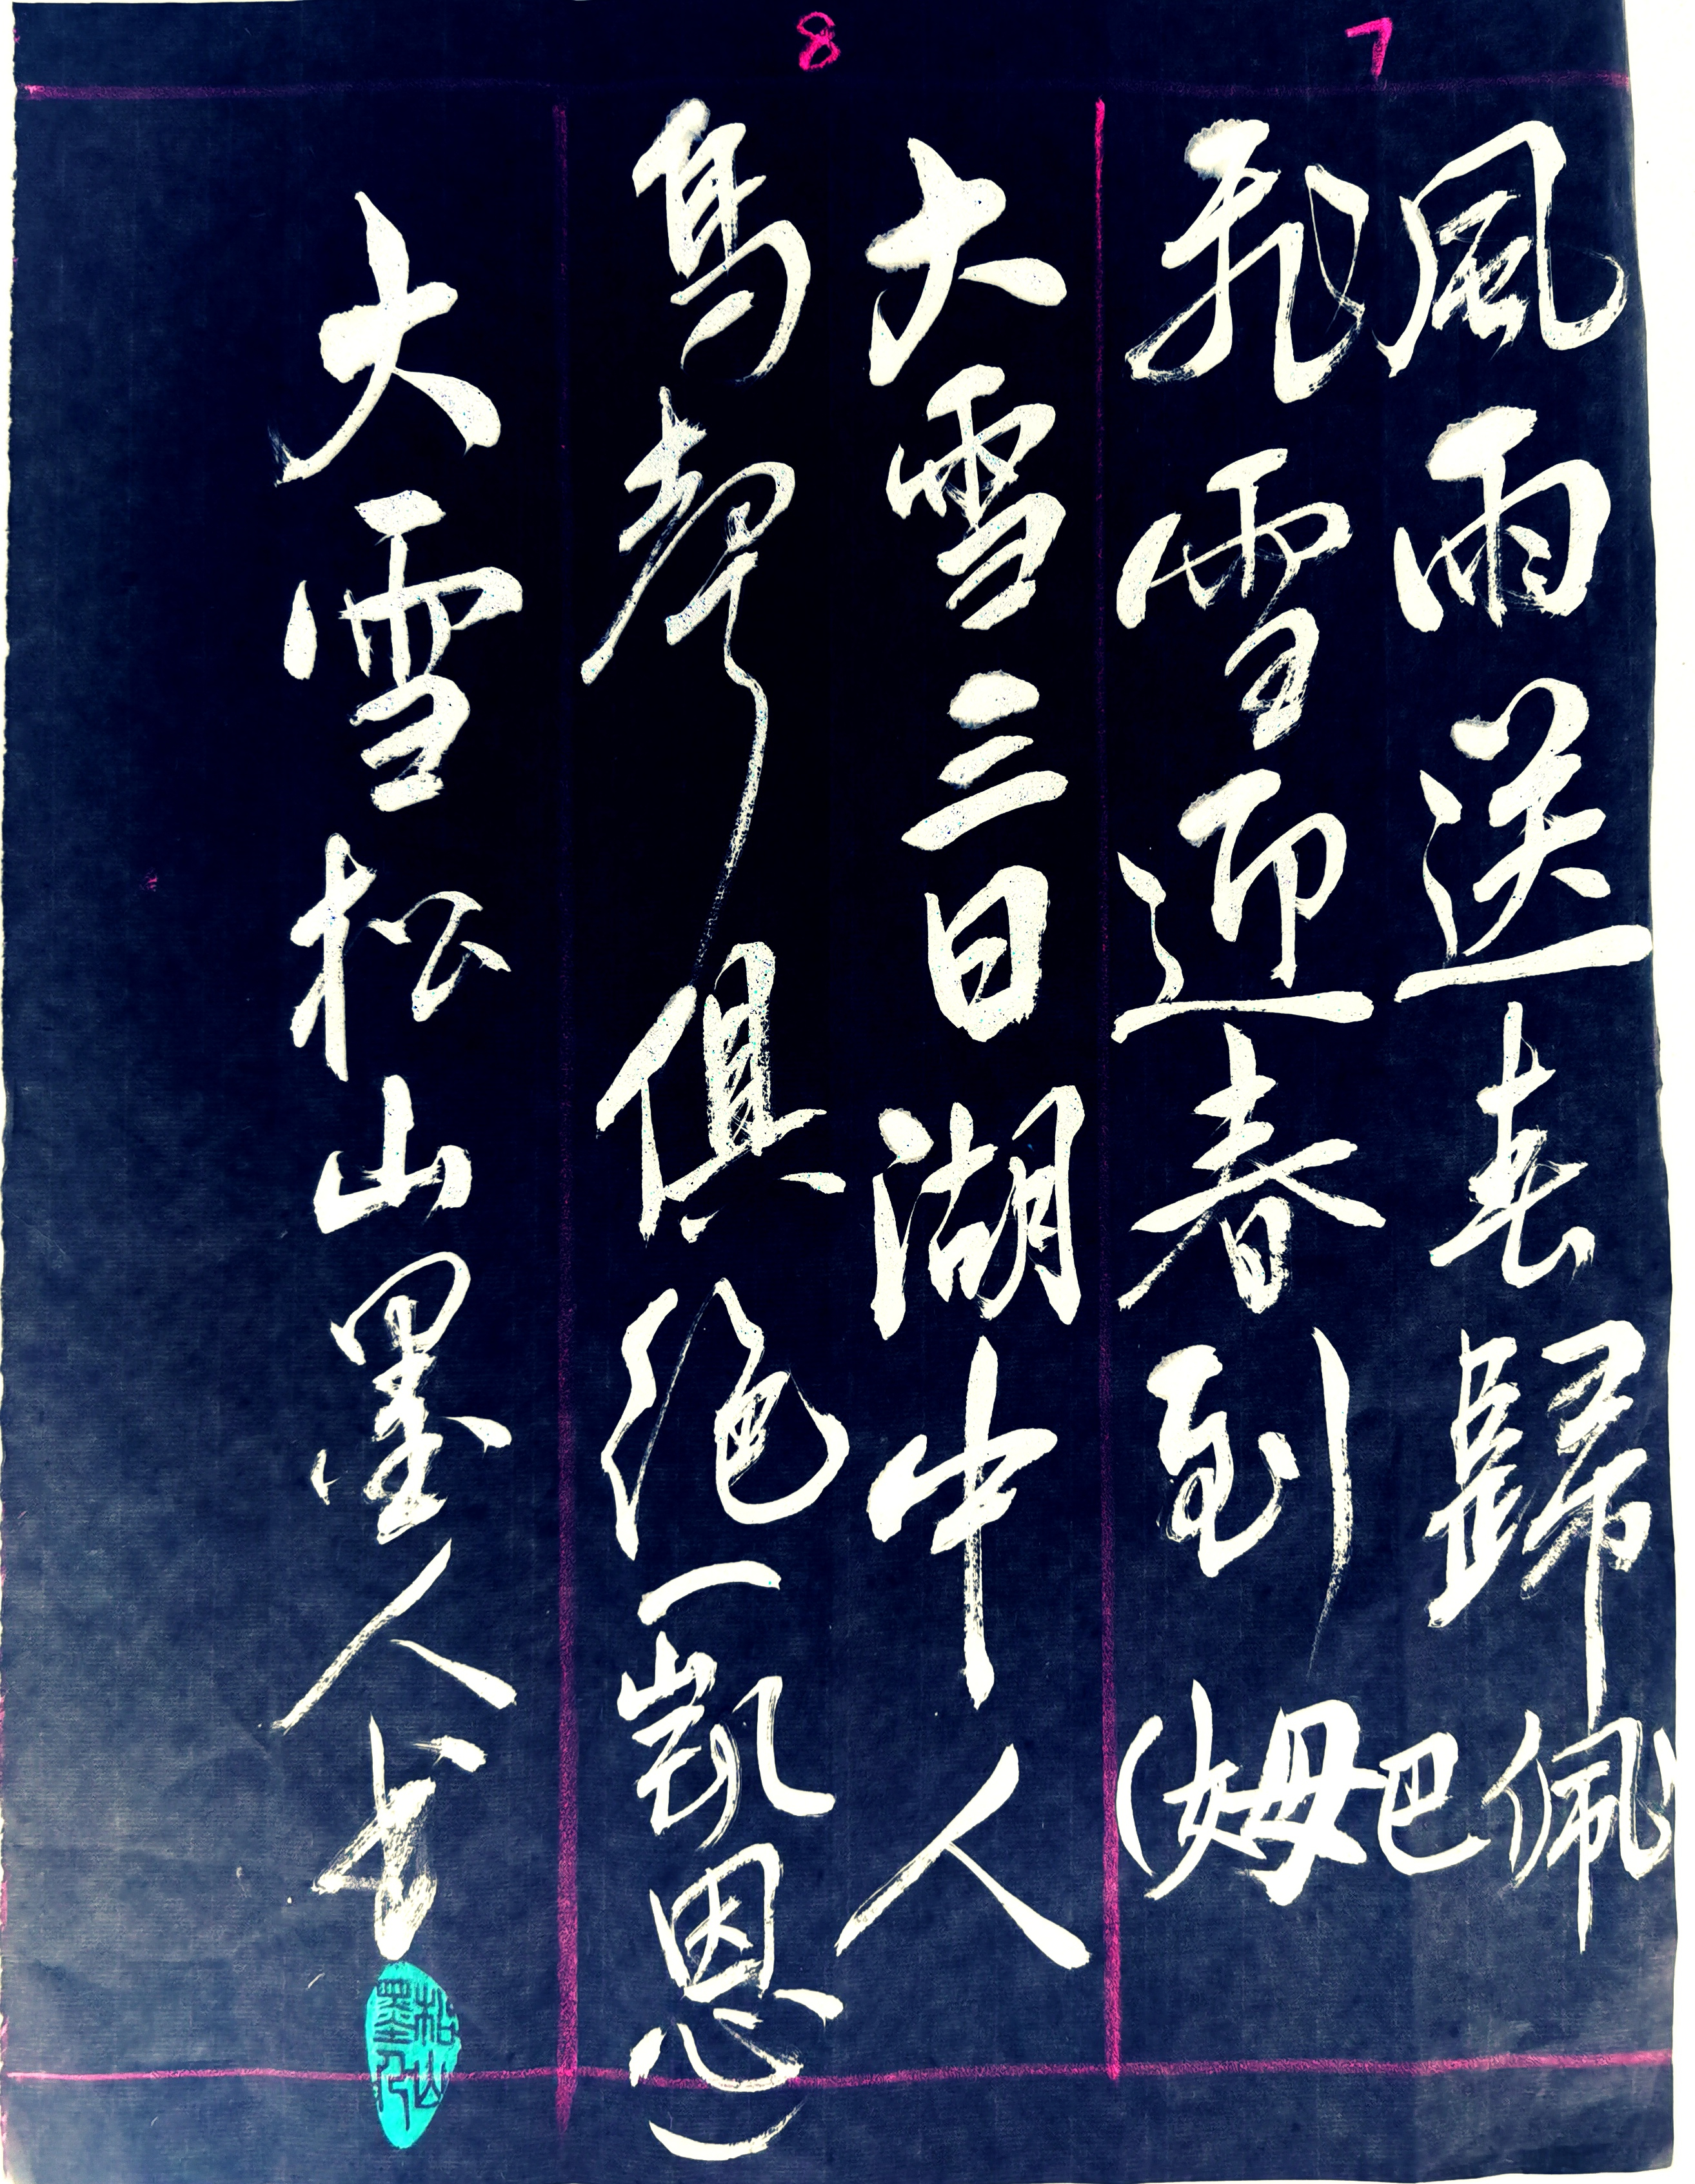 7
風雨送春歸
飛雪迎春到
(姆巴佩)
8
大雪三日湖中人
鳥聲俱絕(凱恩)
大雪松山墨人书
松山墨人